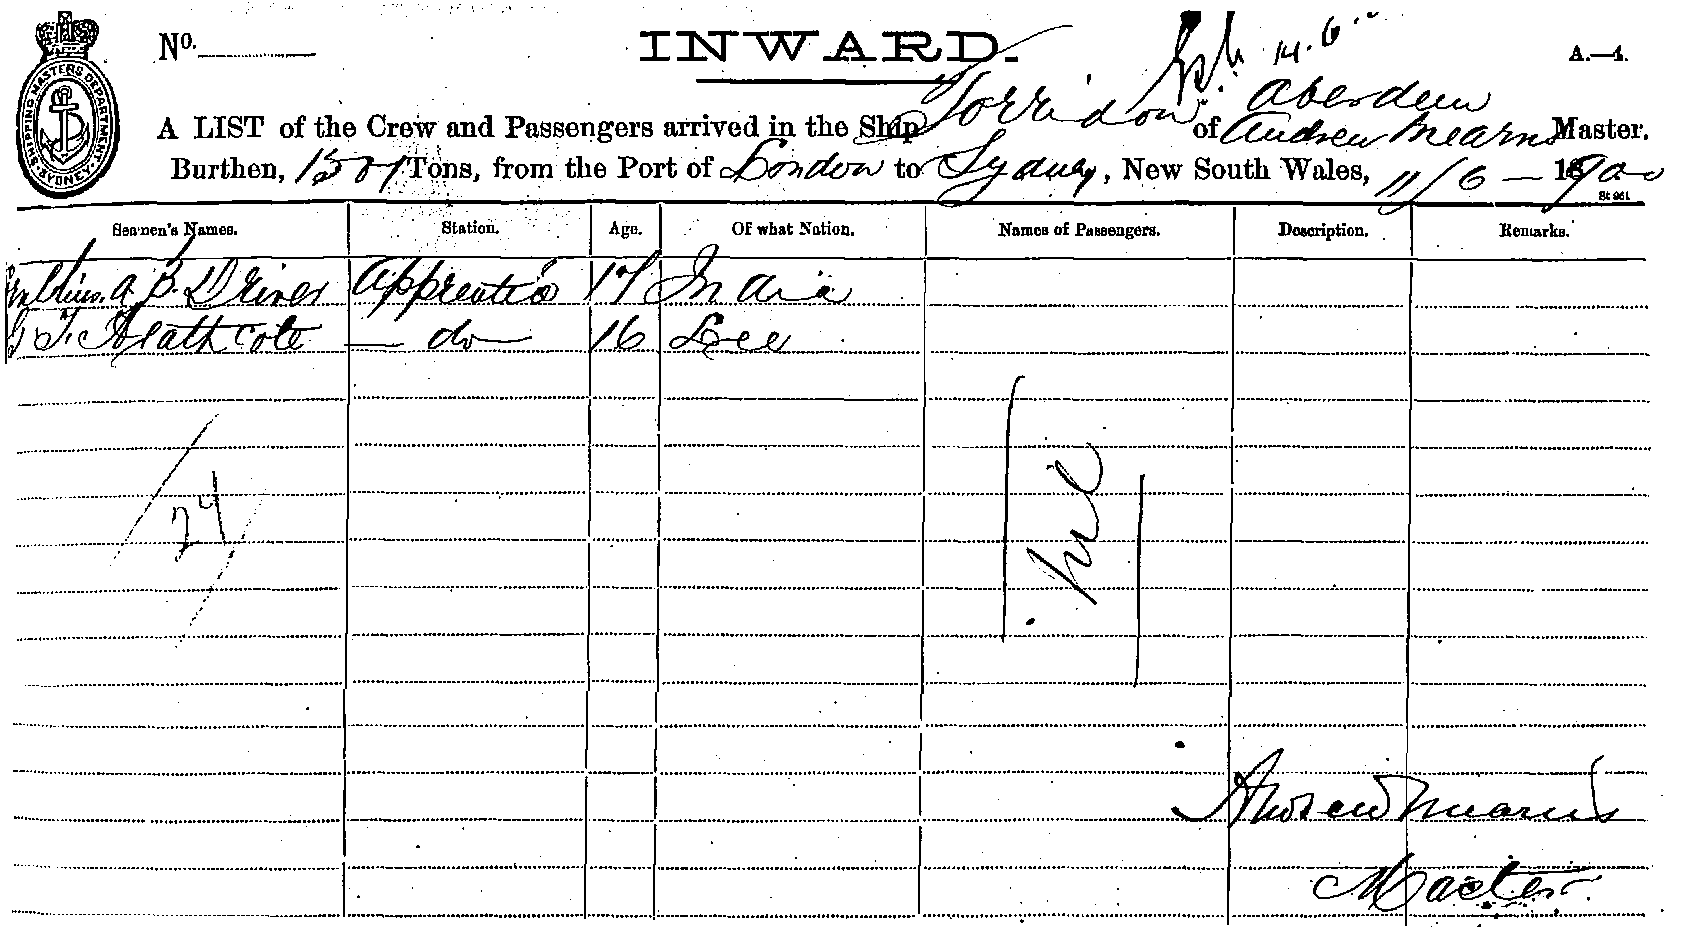 SHIPPING MASTERS DEPARTMENT
SYDNEY
No.
INWARD.
14.6
A.—4.
A LIST of the Crew and Passengers arrived in the Ship Torridon of Aberdeen
Andrew Mearns Master.
Burthen, 1501 Tons, from the Port of London to Sydney, New South Wales, 11/6 — 1900
Seamen's Names. Station. Age. Of what Nation. Names of Passengers. Description. Remarks.
A. B. Driver Apprentice 17 India
G. F. Heathcote — do — 16 Lee
24
nil
Andrew Mearns
Master